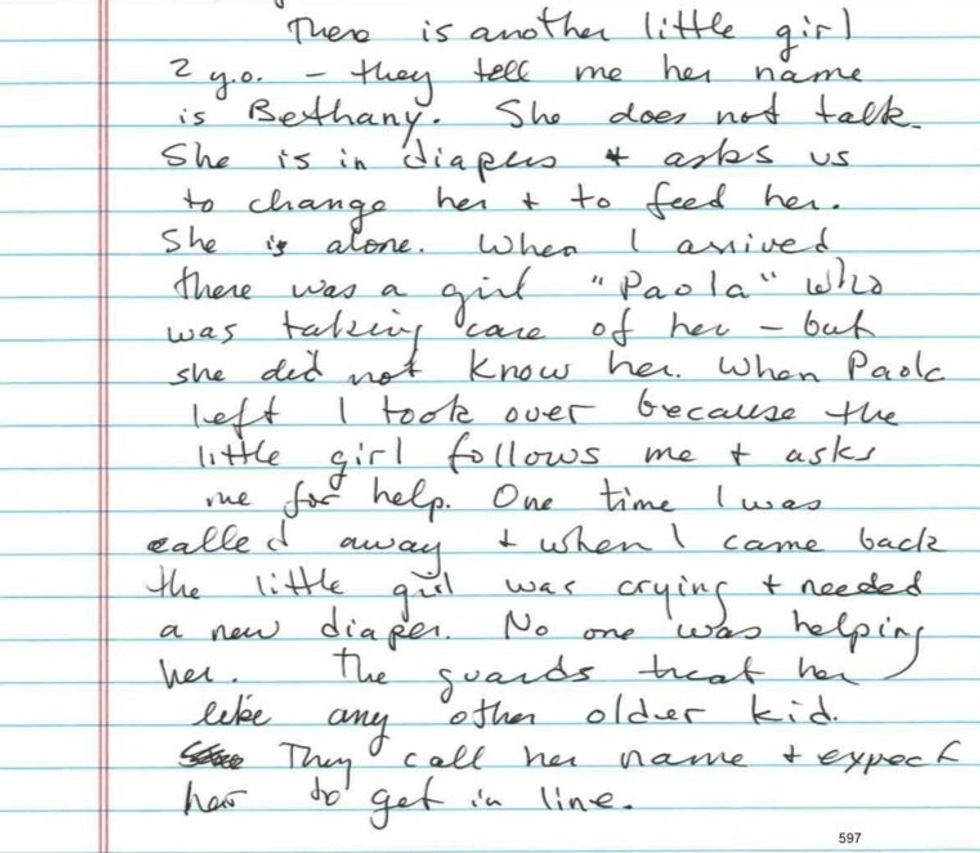 There is another little girl
2 y.o. - they tell me her name
is Bethany. She does not talk.
She is in diapers + asks us
to change her + to feed her.
She is alone. When I arrived
there was a girl "Paola" who
was taking care of her - but
she did not know her. When Paola
left I took over because the
little girl follows me + asks
me for help. One time I was
called away + when I came back
the little girl was crying + needed
a new diaper. No one was helping
her. The guards treat her
like any other older kid.
They call her name + expect
her to get in line.
597